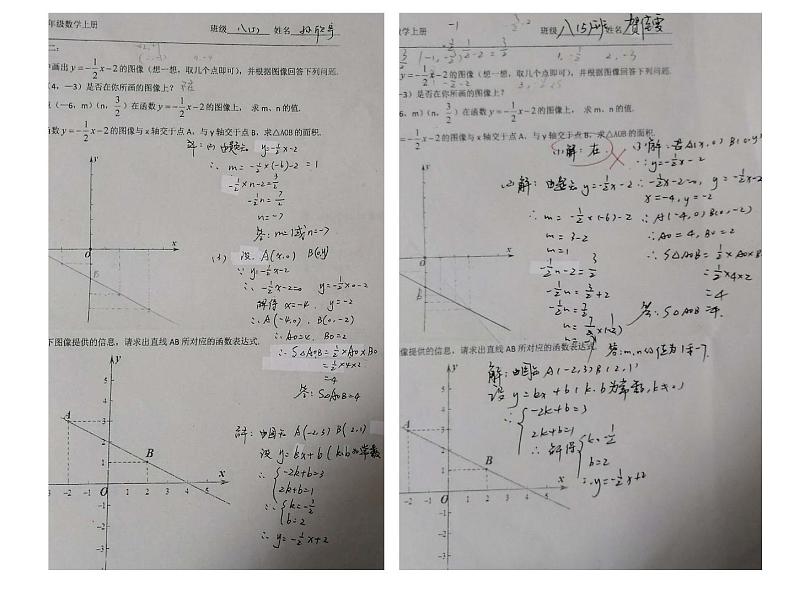 年级数学上册
班级 八(5) 姓名
中画出y=-1/2x-2的图像(想一想,取几个点即可),并根据图像回答下列问题.
(4,-3)是否在你所画的图像上? 在
(-6,m)(n,3/2)在函数y=-1/2x-2的图像上, 求m、n的值.
函数y=-1/2x-2的图像与x轴交于点A,与y轴交于点B,求△AOB的面积.
解:(2)由题意 y=-1/2x-2
∴ m=-1/2×(-6)-2=1
-1/2×n-2=3/2
-1/2n=7/2
n=-7
答:m=1或n=-7
y
x
O
B
(3) 设 A(x,0) B(0,y)
∵ y=-1/2x-2
∴ -1/2x-2=0 y=-1/2×0-2
解得 x=-4, y=-2
∴A(-4,0) B(0,-2)
∴AO=4 BO=2
∴S△AOB=1/2×AO×BO
=1/2×4×2
=4
答:S△AOB=4
下图像提供的信息,请求出直线AB所对应的函数表达式.
y
5
4
3
2
1
-2 -1 O 1 2 3 4 5 x
-1
-2
-3
A
B
解:由图知 A(-2,3) B(2,1)
设 y=kx+b (k,b为常数
∴ {-2k+b=3
2k+b=1
∴ {k=-1/2
b=2
∴ y=-1/2x+2
年级数学上册
班级 八(5)班 姓名
y=-1/2x-2的图像(想一想,取几个点即可),并根据图像回答下列问题.
-3)是否在你所画的图像上?
6,m)(n,3/2)在函数y=-1/2x-2的图像上, 求m、n的值.
=-1/2x-2的图像与x轴交于点A,与y轴交于点B,求△AOB的面积.
(1)解:在.
(2)解:由题意 y=-1/2x-2
∴ m=-1/2×(-6)-2
m=3-2
m=1
-1/2n-2=3/2
-1/2n=3/2+2
-1/2n=7/2
n=7/2×(-2)
n=-7
答:m,n的值为1和-7.
(3)解:若A(x,0) B(0,y)
∵y=-1/2x-2
∴-1/2x-2=0, y=-1/2x-2
x=-4, y=-2
∴A(-4,0) B(0,-2)
∴AO=4, BO=2
∴S△AOB=1/2×AO×B
=1/2×4×2
=4
答:S△AOB=4.
像提供的信息,请求出直线AB所对应的函数表达式.
y
5
4
3
2
1
-2 -1 O 1 2 3 4 5 x
-1
-2
-3
A
B
解:由图知 A(-2,3) B(2,1)
设 y=kx+b(k,b为常数,k≠0)
∴ {-2k+b=3
2k+b=1
∴ 解得 {k=-1/2
b=2
∴y=-1/2x+2